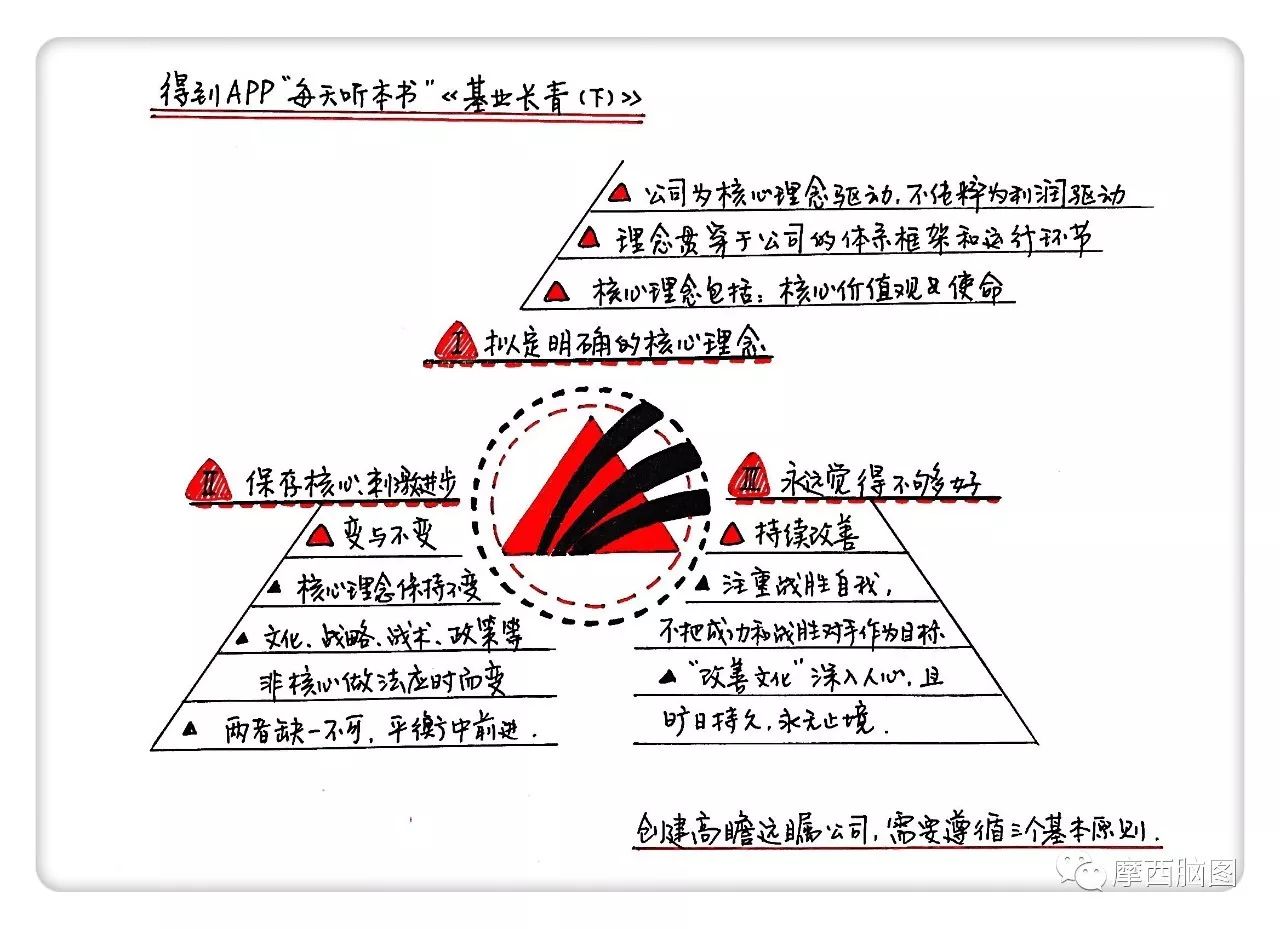 得到APP“每天听本书”《基业长青(下)》
公司为核心理念驱动,不纯粹为利润驱动
理念贯穿于公司的体系框架和运行环节
核心理念包括:核心价值观&使命
I 拟定明确的核心理念
II 保存核心、刺激进步
变与不变
核心理念保持不变
文化、战略、战术、政策等
非核心做法应时而变
两者缺一不可,平衡中前进.
III 永远觉得不够多好
持续改善
注重战胜自我,
不把成功和战胜对手作为目标
“改善文化”深入人心,且
旷日持久,永无止境.
创建高瞻远瞩公司,需要遵循三个基本原则.
摩西脑图